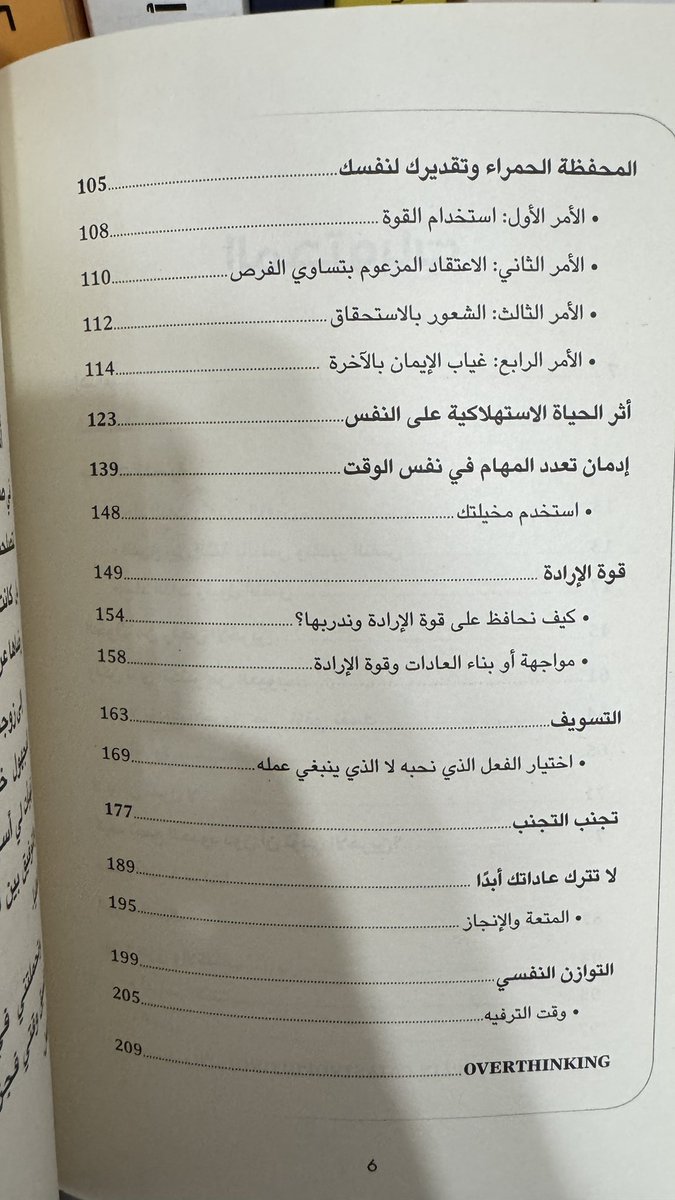 المحفظة الحمراء وتقديرك لنفسك......105
• الأمر الأول: استخدام القوة......108
• الأمر الثاني: الاعتقاد المزعوم بتساوي الفرص......110
• الأمر الثالث: الشعور بالاستحقاق......112
• الأمر الرابع: غياب الإيمان بالآخرة......114
أثر الحياة الاستهلاكية على النفس......123
إدمان تعدد المهام في نفس الوقت......139
• استخدم مخيلتك......148
قوة الإرادة......149
• كيف نحافظ على قوة الإرادة وندربها؟......154
• مواجهة أو بناء العادات وقوة الإرادة......158
التسويف......163
• اختيار الفعل الذي نحبه لا الذي ينبغي عمله......169
تجنب التجنب......177
لا تترك عاداتك أبدًا......189
• المتعة والإنجاز......195
التوازن النفسي......199
• وقت الترفيه......205
OVERTHINKING......209
6